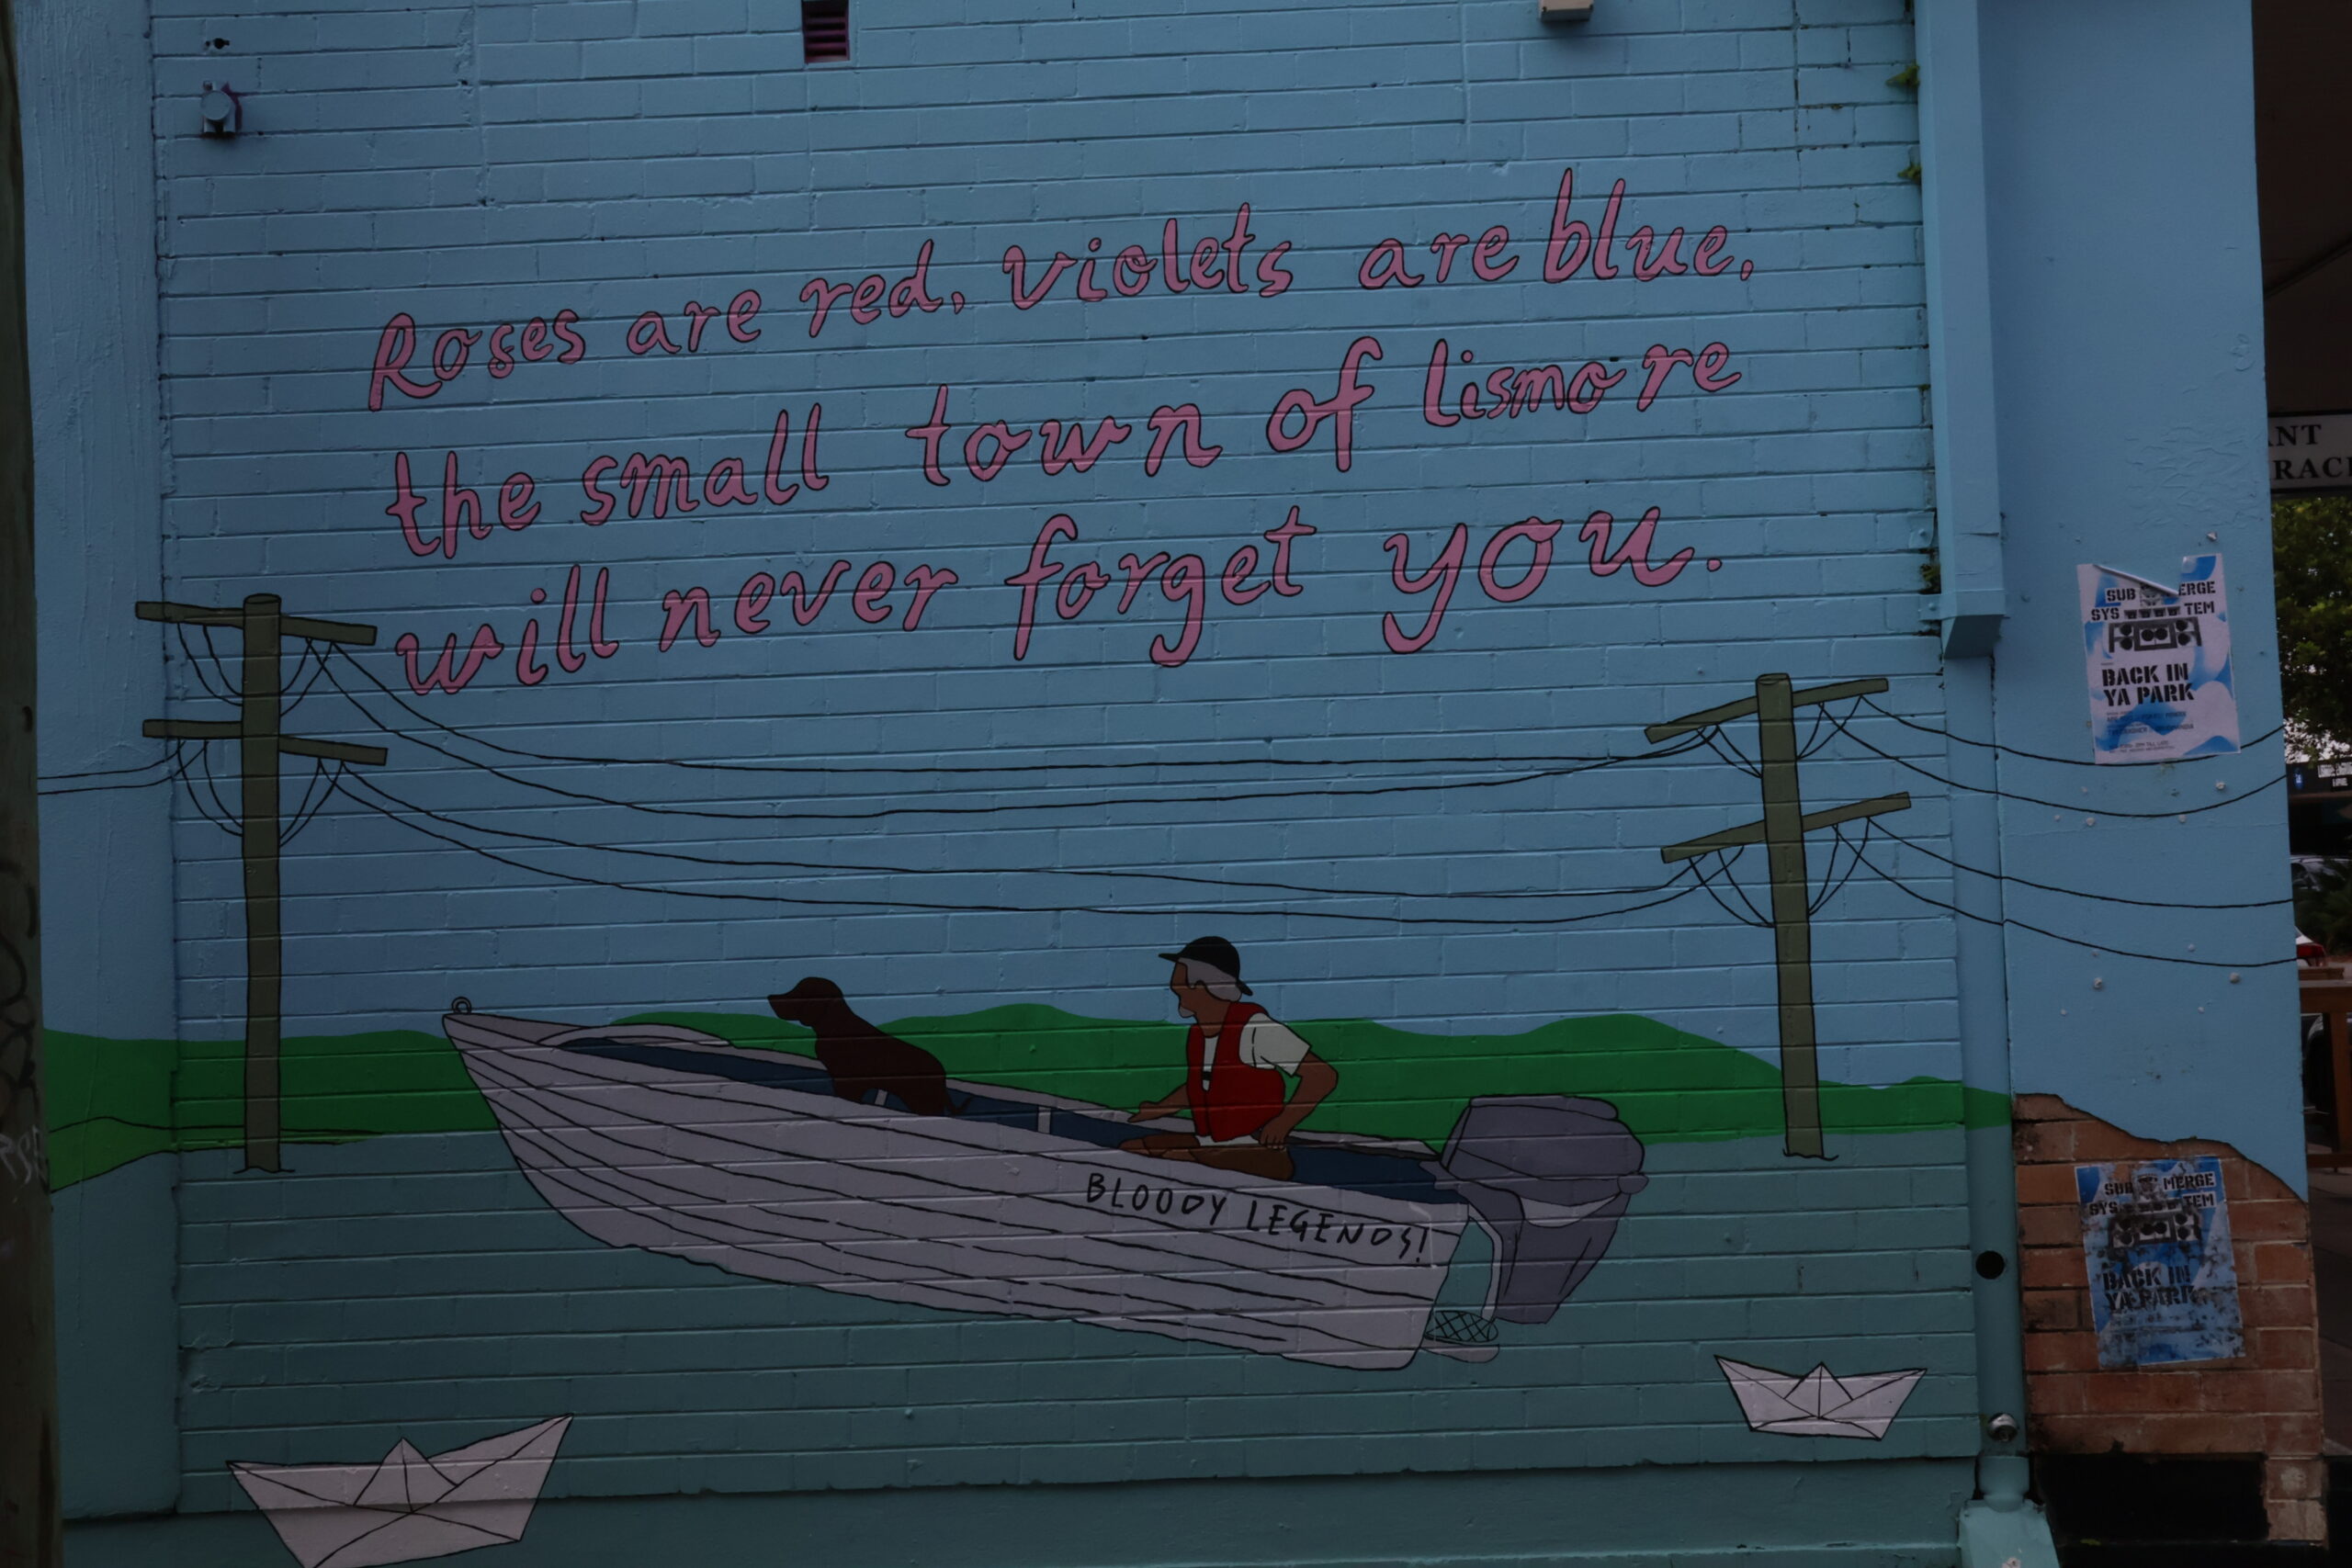 Roses are red, violets are blue,
the small town of lismore
will never forget you.
BLOODY LEGENDS!
ANT
RAC
SUB MERGE
SYS TEM
BACK IN
YA PARK
SUB MERGE
SYS TEM
BACK IN
YA PARK